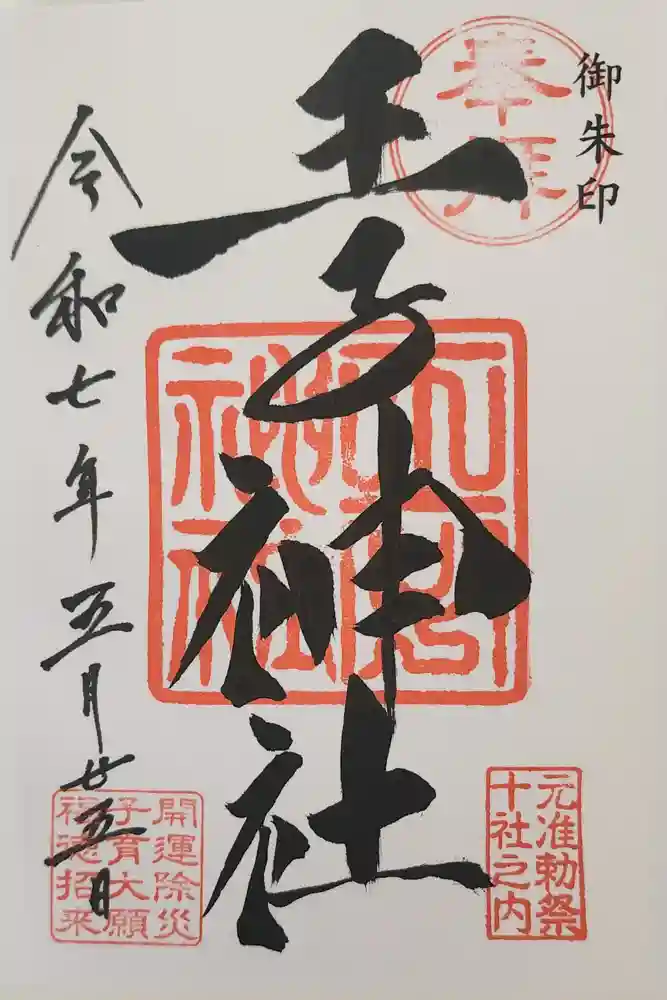 御朱印
奉拝
王子神社
元准勅祭
十社之内
令和七年五月廿五日
開運除災
子育大願
福徳招来